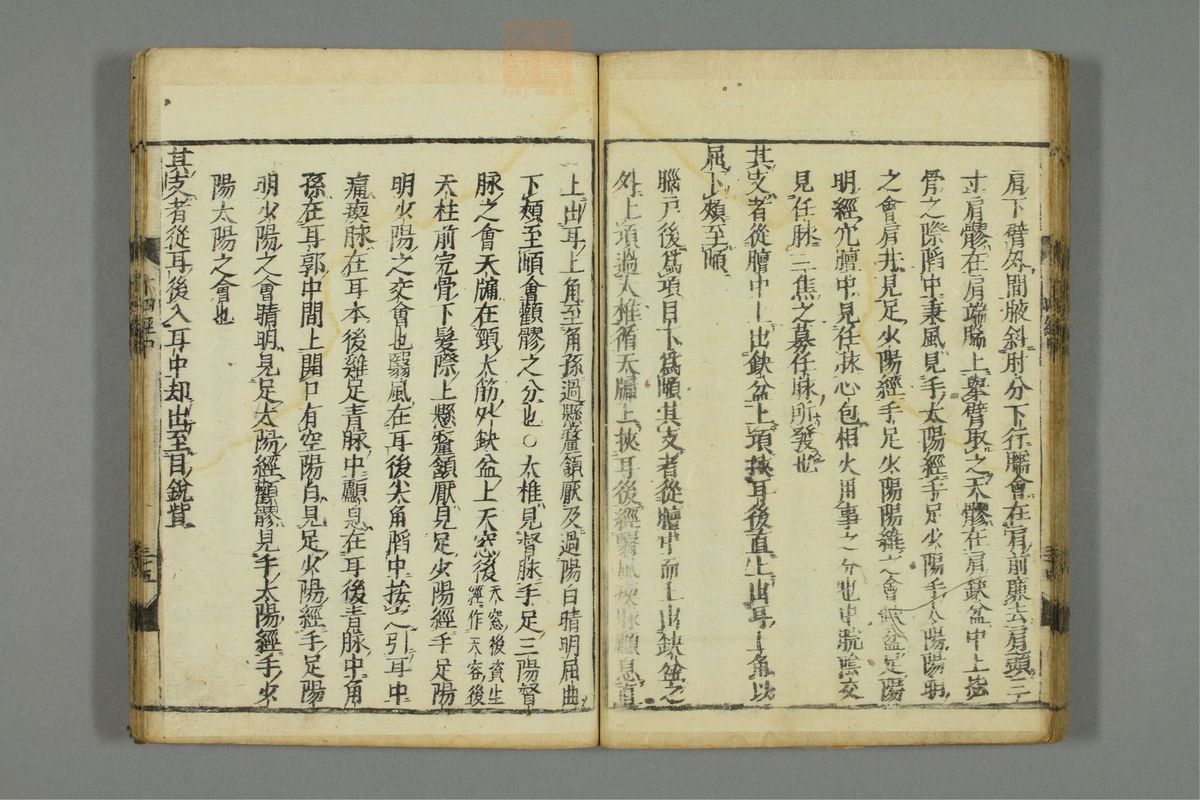 肩下臂外間腋斜肘分下行臑會在肩前廉去肩頭三
寸肩髎在肩端臑上舉臂取之天髎在肩缺盆中上毖
骨之際陷中秉風見手太陽經手足少陽手太陽陽明
之會肩井見足少陽經手足少陽陽維之會缺盆見足陽
明經穴膻中見任脉心包相火用事之分也中脘陰交
見任脉三焦之募任脉所發也
其支者從膻中上出缺盆上項挾耳後直上出耳上角以
屈下頰至䪼
腦戶後爲項目下爲䪼其支者從膻中而上出缺盆之
外上項過大椎循天牖上挾耳後經翳風瘈脉顱息直
上出耳上角至角孫過懸釐頷厭及過陽白睛明屈曲
下頰至䪼會顴髎之分也○大椎見督脉手足三陽督
脉之會天牖在頸大筋外缺盆上天窓後天窓後資生經作天容後
天柱前完骨下髮際上懸釐頷厭見足少陽經手足陽
明少陽之交會也翳風在耳後尖角陷中按之引耳中
痛瘈脉在耳本後雞足青脉中顱息在耳後青脉中角
孫在耳郭中間上開口有空陽白見足少陽經手足陽
明少陽之會睛明見足太陽經顴髎見手太陽經手少
陽太陽之會也
其支者從耳後入耳中却出至目銳眥
十四經中
三十五